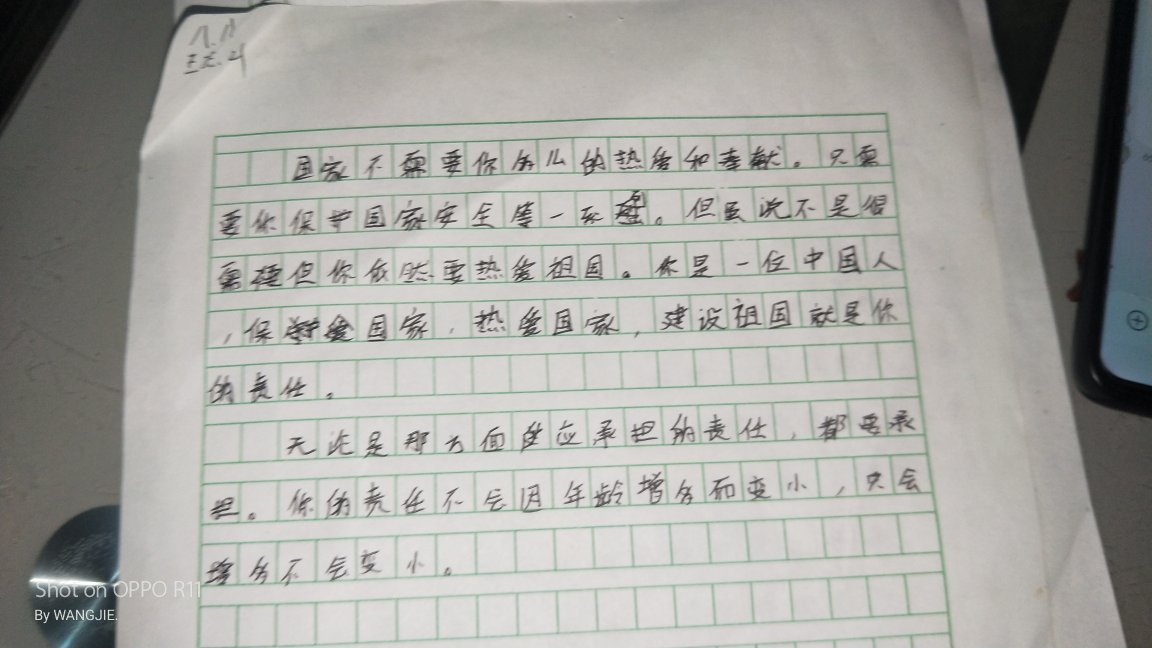 国家不需要你多么的热爱和奉献。只需
要你保护国家安全等一系列。但虽说不是很
重要但你依然要热爱祖国。你是一位中国人
,保护国家,热爱国家,建设祖国就是你
的责任。
无论是那方面的应承担的责任,都要承
担。你的责任不会因年龄增多而变小,只会
增多不会变小。
Shot on OPPO R11
By WANGJIE.